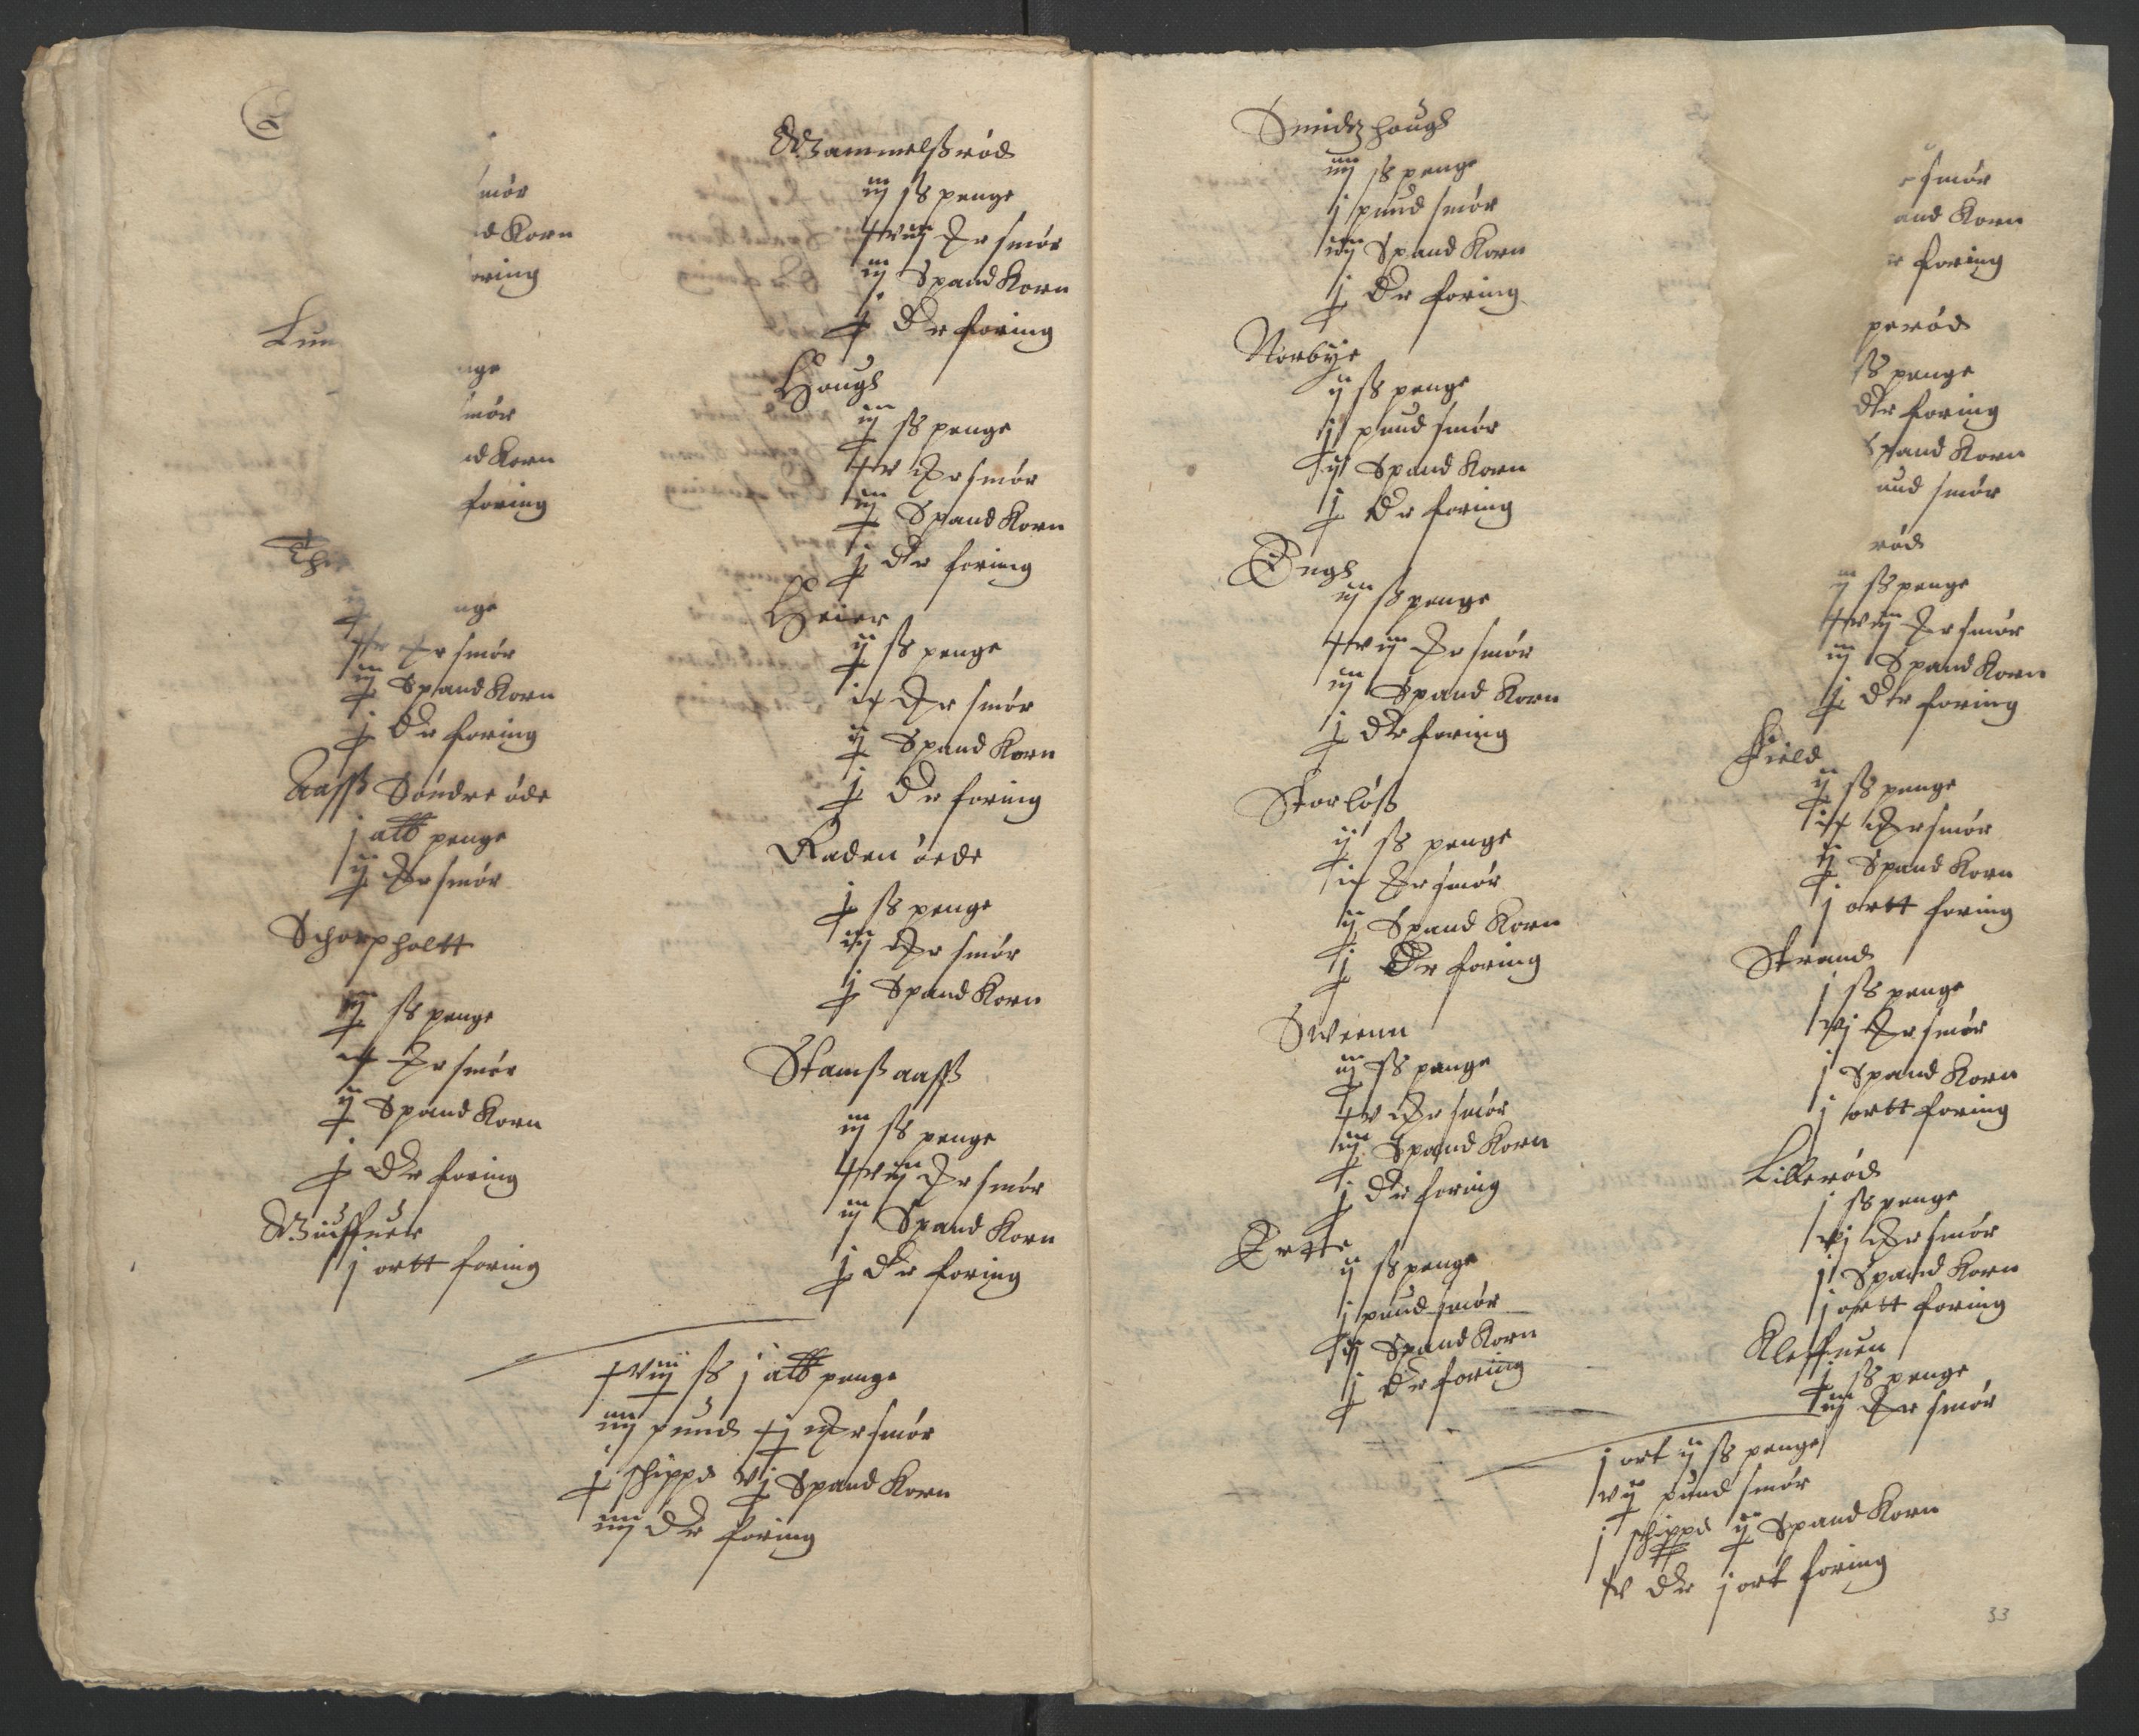 smør
d Korn
oring
Lun
nge
smør
nd Korn
foring
Thi
nge
smør
iij Spand Korn
j foring
Aasß Søndre øde
j att penge
ij smør
Schorpholtt
ij ß penge
ix smør
ij Spand Korn
j foring
j ortt foring
Wammelßrød
iij ß penge
xviij smør
iij Spand Korn
j foring
Hougs
iij ß penge
xv smør
iij Spand Korn
j foring
Heier
ij ß penge
ix smør
ij Spand Korn
j foring
Raden øede
j ß penge
iij smør
j Spand Korn
Stamßaasß
iij ß penge
xviij smør
iij Spand Korn
j foring
xviij ß j att penge
iiij pund xj smør
j schippd vj Spand Korn
foring
Smidz hougs
iiij ß penge
j pund smør
iiij Spand Korn
j foring
Norbye
ij ß penge
j pund smør
ij Spand Korn
j foring
Engs
iij ß penge
xviij smør
iij Spand Korn
j foring
Storløß
ij ß penge
ix smør
ij Spand Korn
j foring
Sweenn
iij ß penge
xv smør
iij Spand Korn
j foring
Ertte
ij ß penge
j pund smør
Spand Korn
j foring
smør
and Korn
foring
perød
ß penge
foring
Spand Korn
und smør
rød
iij ß penge
xviij smør
iij Spand Korn
j foring
Field
ij ß penge
ix smør
ij Spand Korn
j ortt foring
Strand
j ß penge
vj smør
j Spand Korn
j ortt foring
Lillerød
j ß penge
vj smør
j Spand Korn
j ortt foring
Kleffuen
j ß penge
iij smør
j ort ij ß penge
vij pund smør
j schippd Spand Korn
j ort foring
33